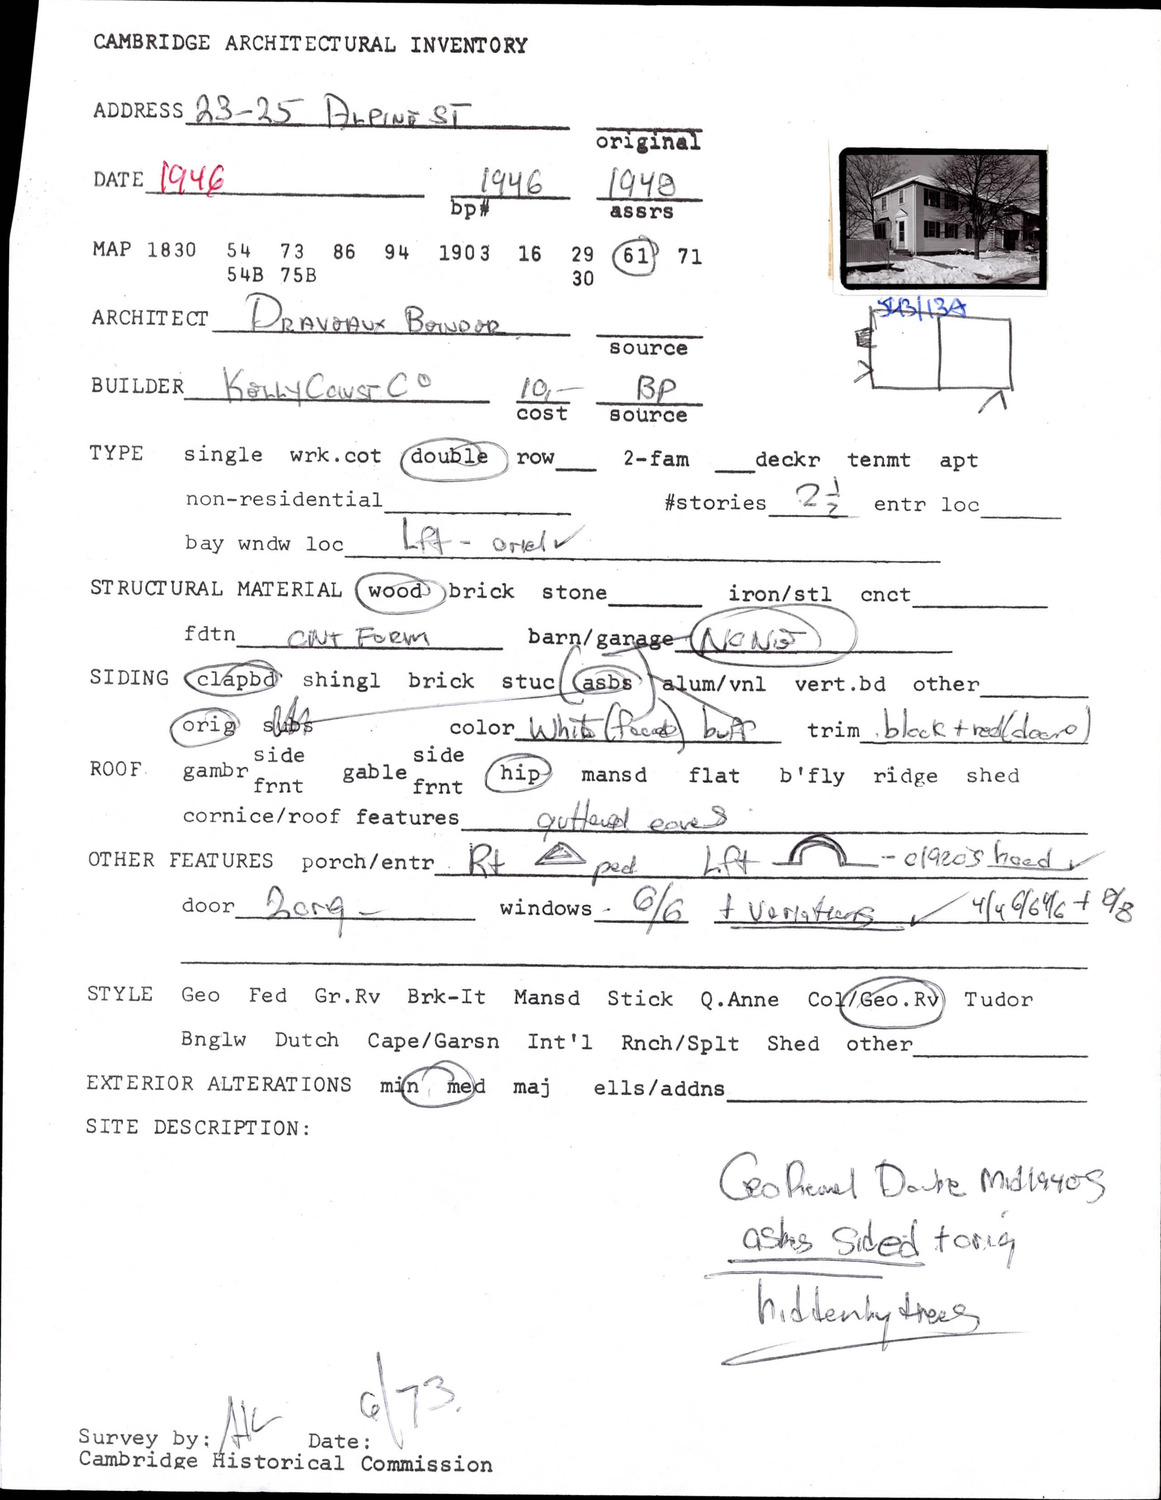 CAMBRIDGE ARCHITECTURAL INVENTORY
ADDRESS 23-25 ALPINE ST
original
DATE 1946 1946 1948
bp# assrs
MAP 1830 54 73 86 94 1903 16 29 61 71
54B 75B 30
ARCHITECT
source
BUILDER Kelly Const Co 10,- BP
cost source
TYPE single wrk.cot double row 2-fam deckr tenmt apt
non-residential #stories 2 1/2 entr loc
bay wndw loc Lft - oriel ✓
STRUCTURAL MATERIAL wood brick stone iron/stl cnct
fdtn CMT FORM barn/garage NONE
SIDING clapbd shingl brick stuc asbs alum/vnl vert.bd other
orig subs color White (facade) buff trim black + red (doors)
ROOF gambr side frnt gable side frnt hip mansd flat b'fly ridge shed
cornice/roof features guttered eaves
OTHER FEATURES porch/entr Rt ped Lft - c1920's hood ✓
door 2 orig - windows - 6/6 + variations ✓ 4/4 6/6 + 8/8
STYLE Geo Fed Gr.Rv Brk-It Mansd Stick Q.Anne Col/Geo.Rv Tudor
Bnglw Dutch Cape/Garsn Int'l Rnch/Splt Shed other
EXTERIOR ALTERATIONS min med maj ells/addns
SITE DESCRIPTION:
Geo Revival Double Mid 1940s
asbs sided + orig
hidden by trees
Survey by: Date: 6/73.
Cambridge Historical Commission